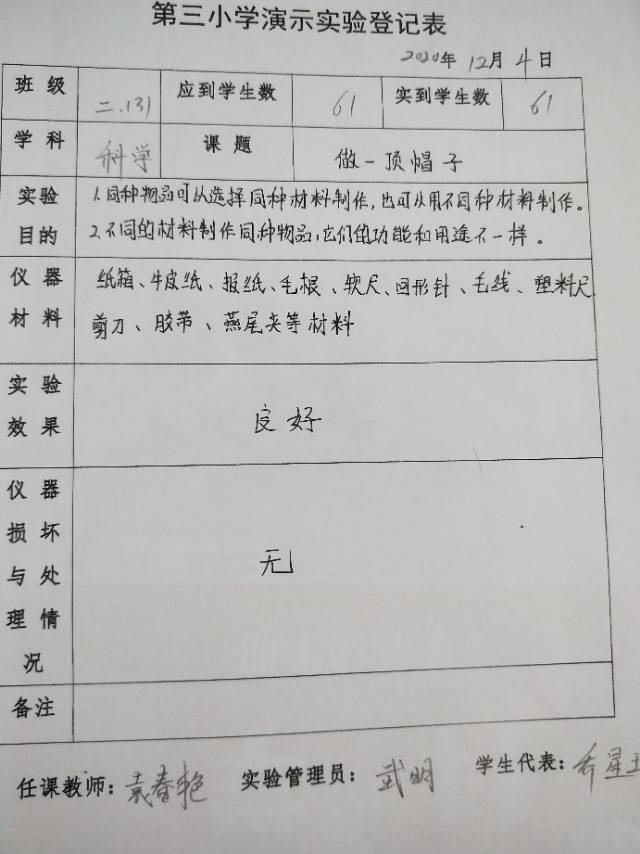 第三小学演示实验登记表
2020年 12月 4日
班级 二.(3) 应到学生数 61 实到学生数 61
学科 科学 课题 做一顶帽子
实验目的
1.同种物品可以选择同种材料制作,也可以用不同种材料制作。
2.不同的材料制作同种物品,它们的功能和用途不一样。
仪器材料
纸箱、牛皮纸、报纸、毛根、软尺、回形针、毛线、塑料尺
剪刀、胶带、燕尾夹等材料
实验效果
良好
仪器损坏与处理情况
无
备注
任课教师:袁春艳 实验管理员:武明 学生代表:乔星